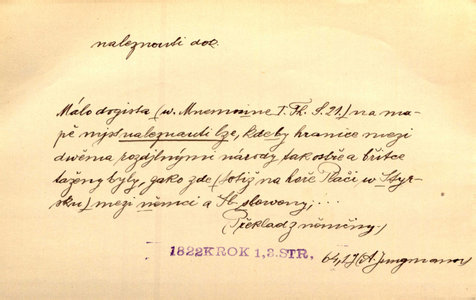 naleznouti dok.
Málo dogista (w. Mnemosine T. Th. S. 21.) na ma-
pě mjst naleznauti lze, kde by hranice mezi
dwěma rozdjlnými národy tak ostře a břitce
taženy byly, gako zde (totiž na hoře Plači w Styr-
sku) mezi němci a Sl. slowany; ...
(Překlad z němčiny)
1822 KROK 1,3. STR. 64, (A. Jungmann)